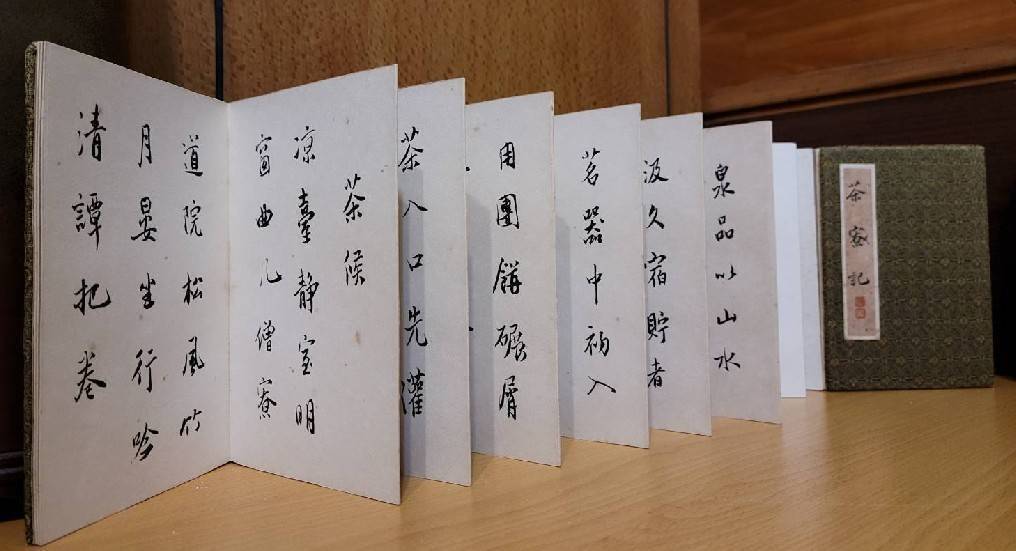 茶寮記
泉品以山水
汲久宿貯者
茗器中初入
用團餅碾屑
茶入口先灌
茶候
凉臺静室明
窗曲几僧寮
道院松風竹
月晏坐行吟
清譚把卷